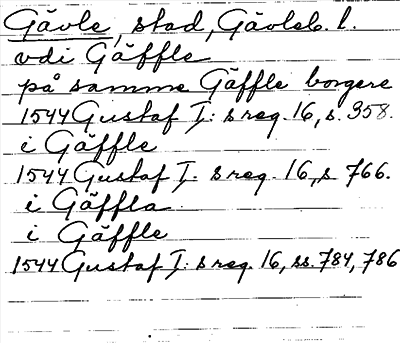 Gävle, stad, Gävleb. l.
vdi Gäffle
på samme Gäffle borgere
1544 Gustaf I: s reg. 16, s. 358.
i Gäffle
1544 Gustaf I. s reg. 16, s. 766.
i Gäffla
i Gäffle
1544 Gustaf I: s reg. 16, ss. 784, 786